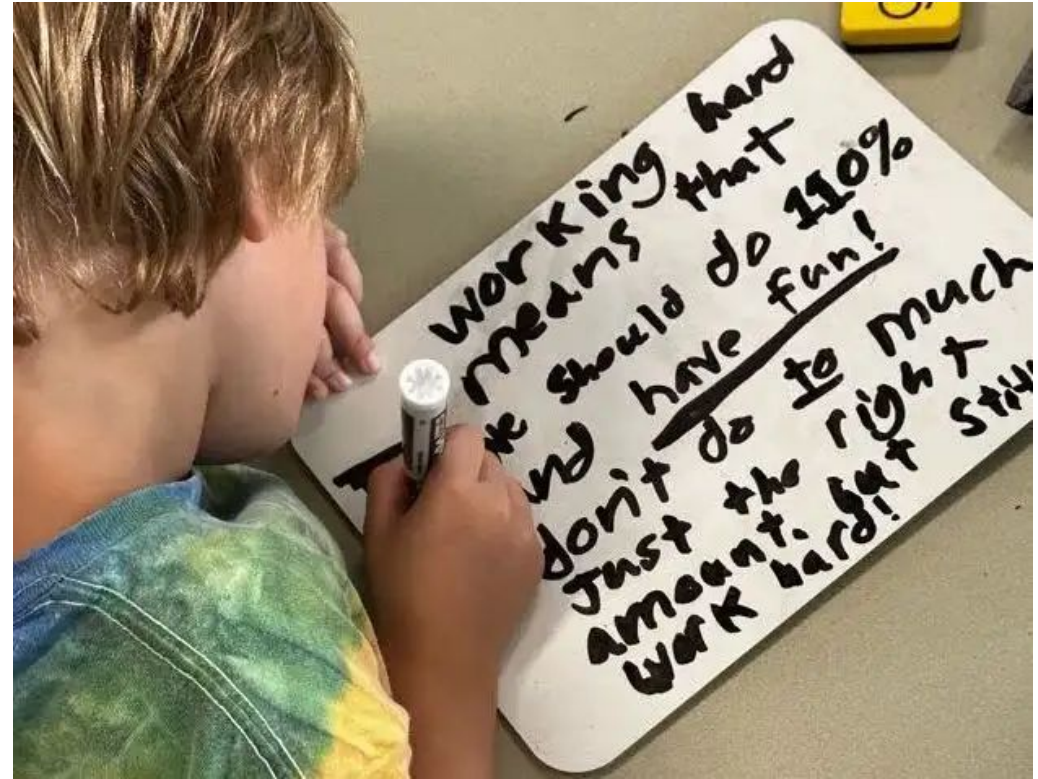 working hard
means that
should do 110%
have fun!
don't do to much
Just the right
amount. but still
work hard!